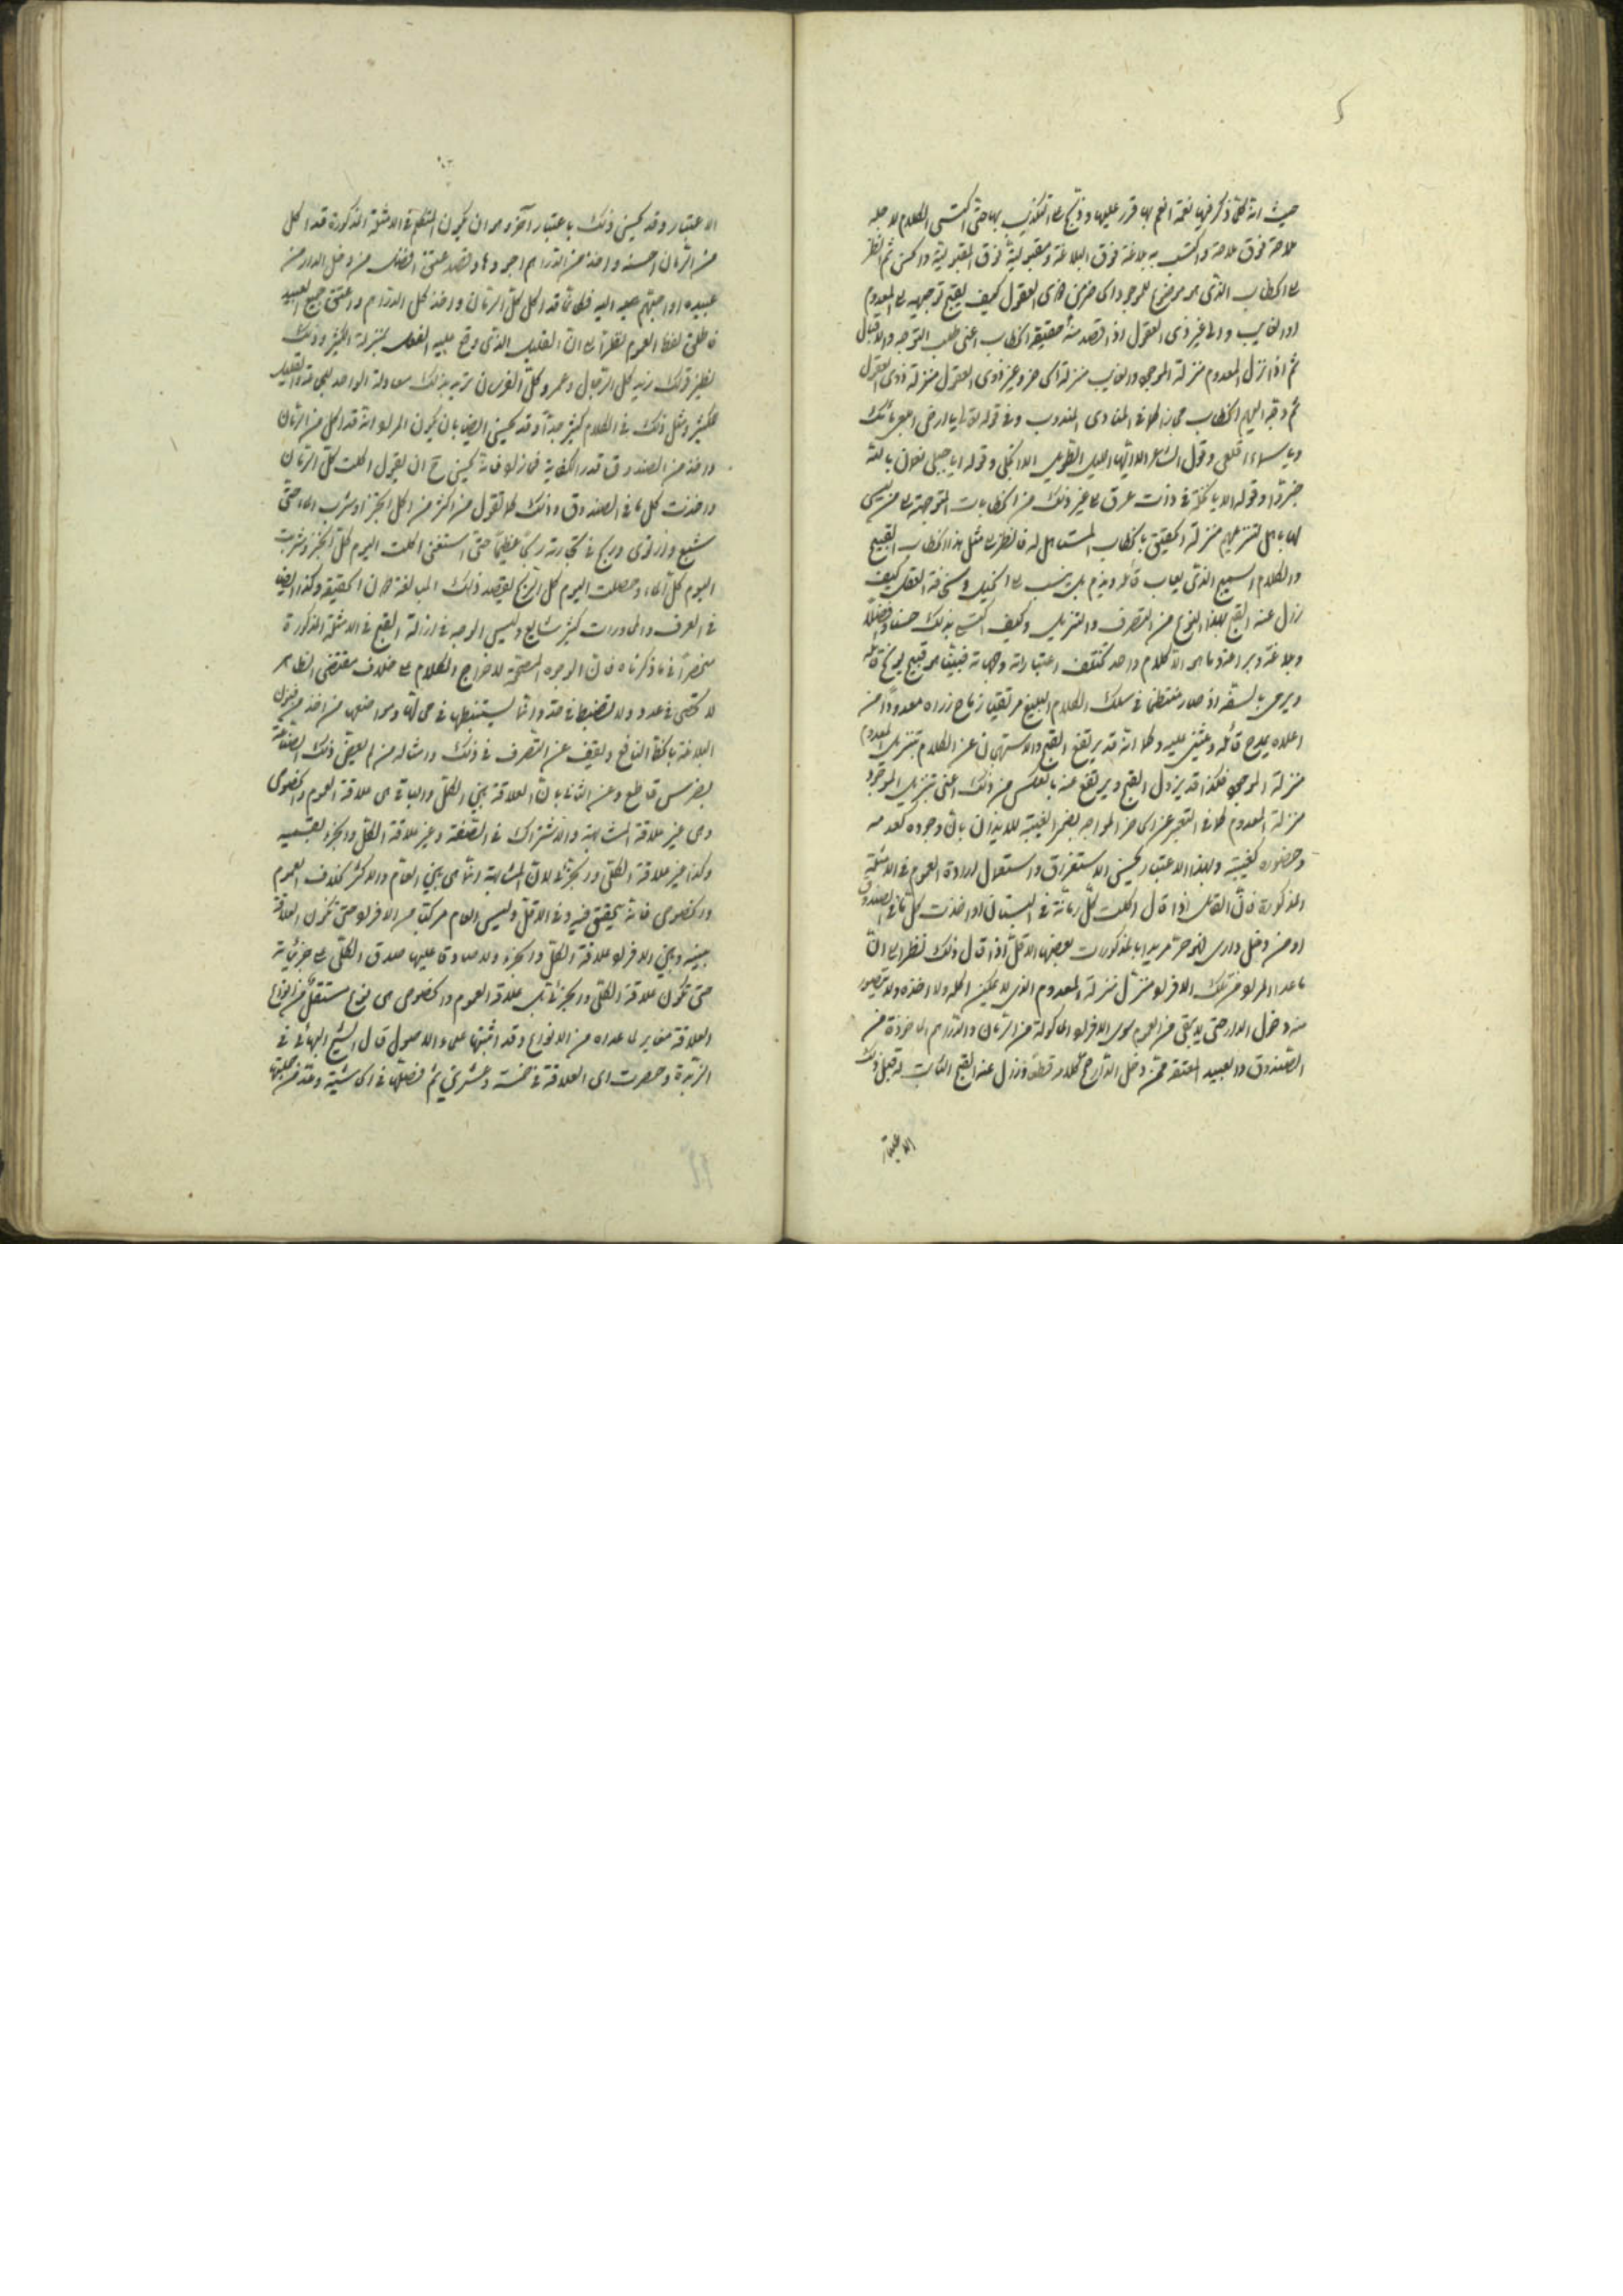 حيث انه كلما ذكر فيها نعمة انعم بها قرر عليها ووبخ على التكذيب بها حتى اكتسى الكلام لاجله
ملاحة فوق ملاحة واكتسب به بلاغة فوق البلاغة ومقبولية فوق المقبولية والحسن ثم انظر
على الخطاب الذى هو موضوع للموجود الحاضر من ذوى العقول كيف يقبح توجيهه على المعدوم
او الغايب والى غير ذى العقول اذا قصد منه حقيقة الخطاب اعنى طلب التوجه والاقبال
ثم اذا نزل المعدوم منزلة الموجود والغايب منزلة الحاضر وغير ذوى العقول منزلة ذوى العقول
ثم وجه اليهم الخطاب مجازا كما فى المنادى المندوب وفى قوله تعالى يا ارض ابلعى مائك
ويا سماء اقلعى وقول الشاعر الا ايها الليل الطويل الا انجلى وقوله ايا جبلى نعمان بالله
خبرا وقوله الا يا نخلة فى ذات عرق الى غير ذلك من الخطابات المتوجهة على من ليس
لها باهل لتنزيلهم منزلة الحقيق بالخطاب المستاهل له فانظر على مثل هذا الخطاب القبيح
والكلام السميج الذى يعاب قائله ويذم بل ينسب على الخبل وسخافة العقل كيف
زال عنه القبح بهذا النوع من التصرف والتنزيل وكيف اكتسب بذلك حسنا وفضلا
وبلاغة وبراعة وما هو الا كلام واحد تختلف اعتباراته وجهاته فبينا هو قبيح يوبخ قائله
ويرمى بالسفه اذ صار منتظما فى سلك الكلام البليغ مرتقيا ارتفاع ذراه معدودا من
اعلاه يمدح قائله ويثنى عليه وكما انه قد يرتفع القبح والاستهجان عن الكلام بتنزيل المعدوم
منزلة الموجود فكذا قد يزول القبح ويرتفع عنه بالعكس من ذلك اعنى تنزيل الموجود
منزلة المعدوم كما فى التعبير عن الحاضر المواجه بضمير الغيبة للايذان بان وجوده كعدمه
وحضوره كغيبته وبهذا الاعتبار يحسن الاستغراق واستعمال ارادة العموم فى الامثلة
المذكورة فان القائل اذا قال اكلت كل رمانة فى البستان او اخذت كل ما فى الصندوق
او من دخل دارى فهو حر مريدا بالمذكورات بعضها الاقل اذا قال ذلك نظرا على ان
ما عدا المراد من تلك الافراد منزل منزلة المعدوم الذى لا يمكن اكله ولا اخذه ولا يتصور
منه دخول الدار حتى لا يبقى من العموم سوى الافراد الماكولة من الرمان والدراهم الماخوذة من
الصندوق والعبيد المعتقة ممن دخل الدار صح كلامه قطعا وزال عنه القبح الثابت له قبل ذلك
الاعتبار
الاعتبار وقد يحسن ذلك باعتبار آخر وهو ان يكون المتكلم فى الامثلة المذكورة قد اكل
من الرمان احسنه واخذ من الدراهم اجودها وقصد عتق افضل من دخل الدار من
عبيده او احبهم عليه اليه فكانه قد اكل كل الرمان واخذ كل الدراهم واعتق جميع العبيد
فاطلق لفظ العموم نظرا على ان القليل الذى وقع عليه الفعل بمنزلة الكثير وذلك
نظير قولك زيد كل الرجال وعمرو كل الفرسان تريد بذلك معادلة الواحد للجماعة والقليل
للكثير ومثل ذلك فى الكلام كثير جدا وقد يحسن ايضا بان يكون المراد انه قد اكل من الرمان
واخذ من الصندوق قدر الكفاية فما زاد فانه يحسن ح ان يقول اكلت كل الرمان
واخذت كل ما فى الصندوق وذلك كما تقول من اكثر من اكل الخبز او شرب الماء حتى
شبع وارتوى وربح فى تجارته ربحا عظيما حتى استغنى اكلت اليوم كل الخبز وشربت
اليوم كل الماء وحصلت اليوم كل الربح يقصد ذلك المبالغة لا ان الحقيقة وكذا ايضا
فى العرف والمحاورات كثير شايع وليس الوجه فى ازالة القبح فى الامثلة المذكورة
منحصرا فى ما ذكرناه فان الوجوه المصححة لاخراج الكلام على خلاف مقتضى الظاهر
لا تحصى فى عدد ولا تنضبط فى حد وانما يستنبطها فى محالها ومواضعها من اخذ من فنون
البلاغة بالحظ النافع ويقف عن التصرف فى ذلك وامثاله من لم يعض ذلك الصناعة
بضرس قاطع وعن الثانى بان العلاقة بين الكل والباقى هى علاقة العموم والخصوص
وهى غير علاقة المشابهة والاشتراك فى الصفة وغير علاقة الكل والجزء بقسميه
وكذا غير علاقة الكلى والجزئى لان المشابهة انما هى بين العام والاكثر بخلاف العموم
والخصوص فانه يتحقق فيه وفى الاقل وليس العام مركبا من الافراد حتى تكون العلاقة
بينه وبين الافراد علاقة الكل والجزء ولا صادقا عليها صدق الكلى على جزئياته
حتى تكون علاقة الكلى والجزئى بل علاقة العموم والخصوص هى نوع مستقل من انواع
العلاقة مغاير لما عداه من الانواع وقد اثبتها علماء الاصول قال الشيخ البهائى فى
الزبدة وحصرت اى العلاقة فى خمسة وعشرين ثم فصلها فى الحاشية وعد من جملتها